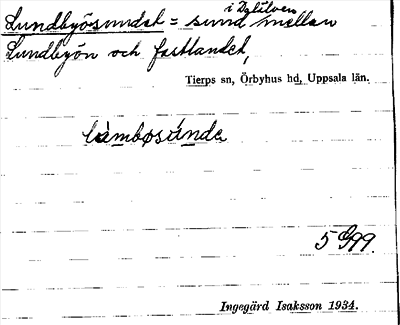 Lundbyösundet = sund i Dylälven mellan
Lundbyön och fastlandet,
Tierps sn, Örbyhus hd, Uppsala län.
låmbosúnde
5 G99
Ingegärd Isaksson 1934.